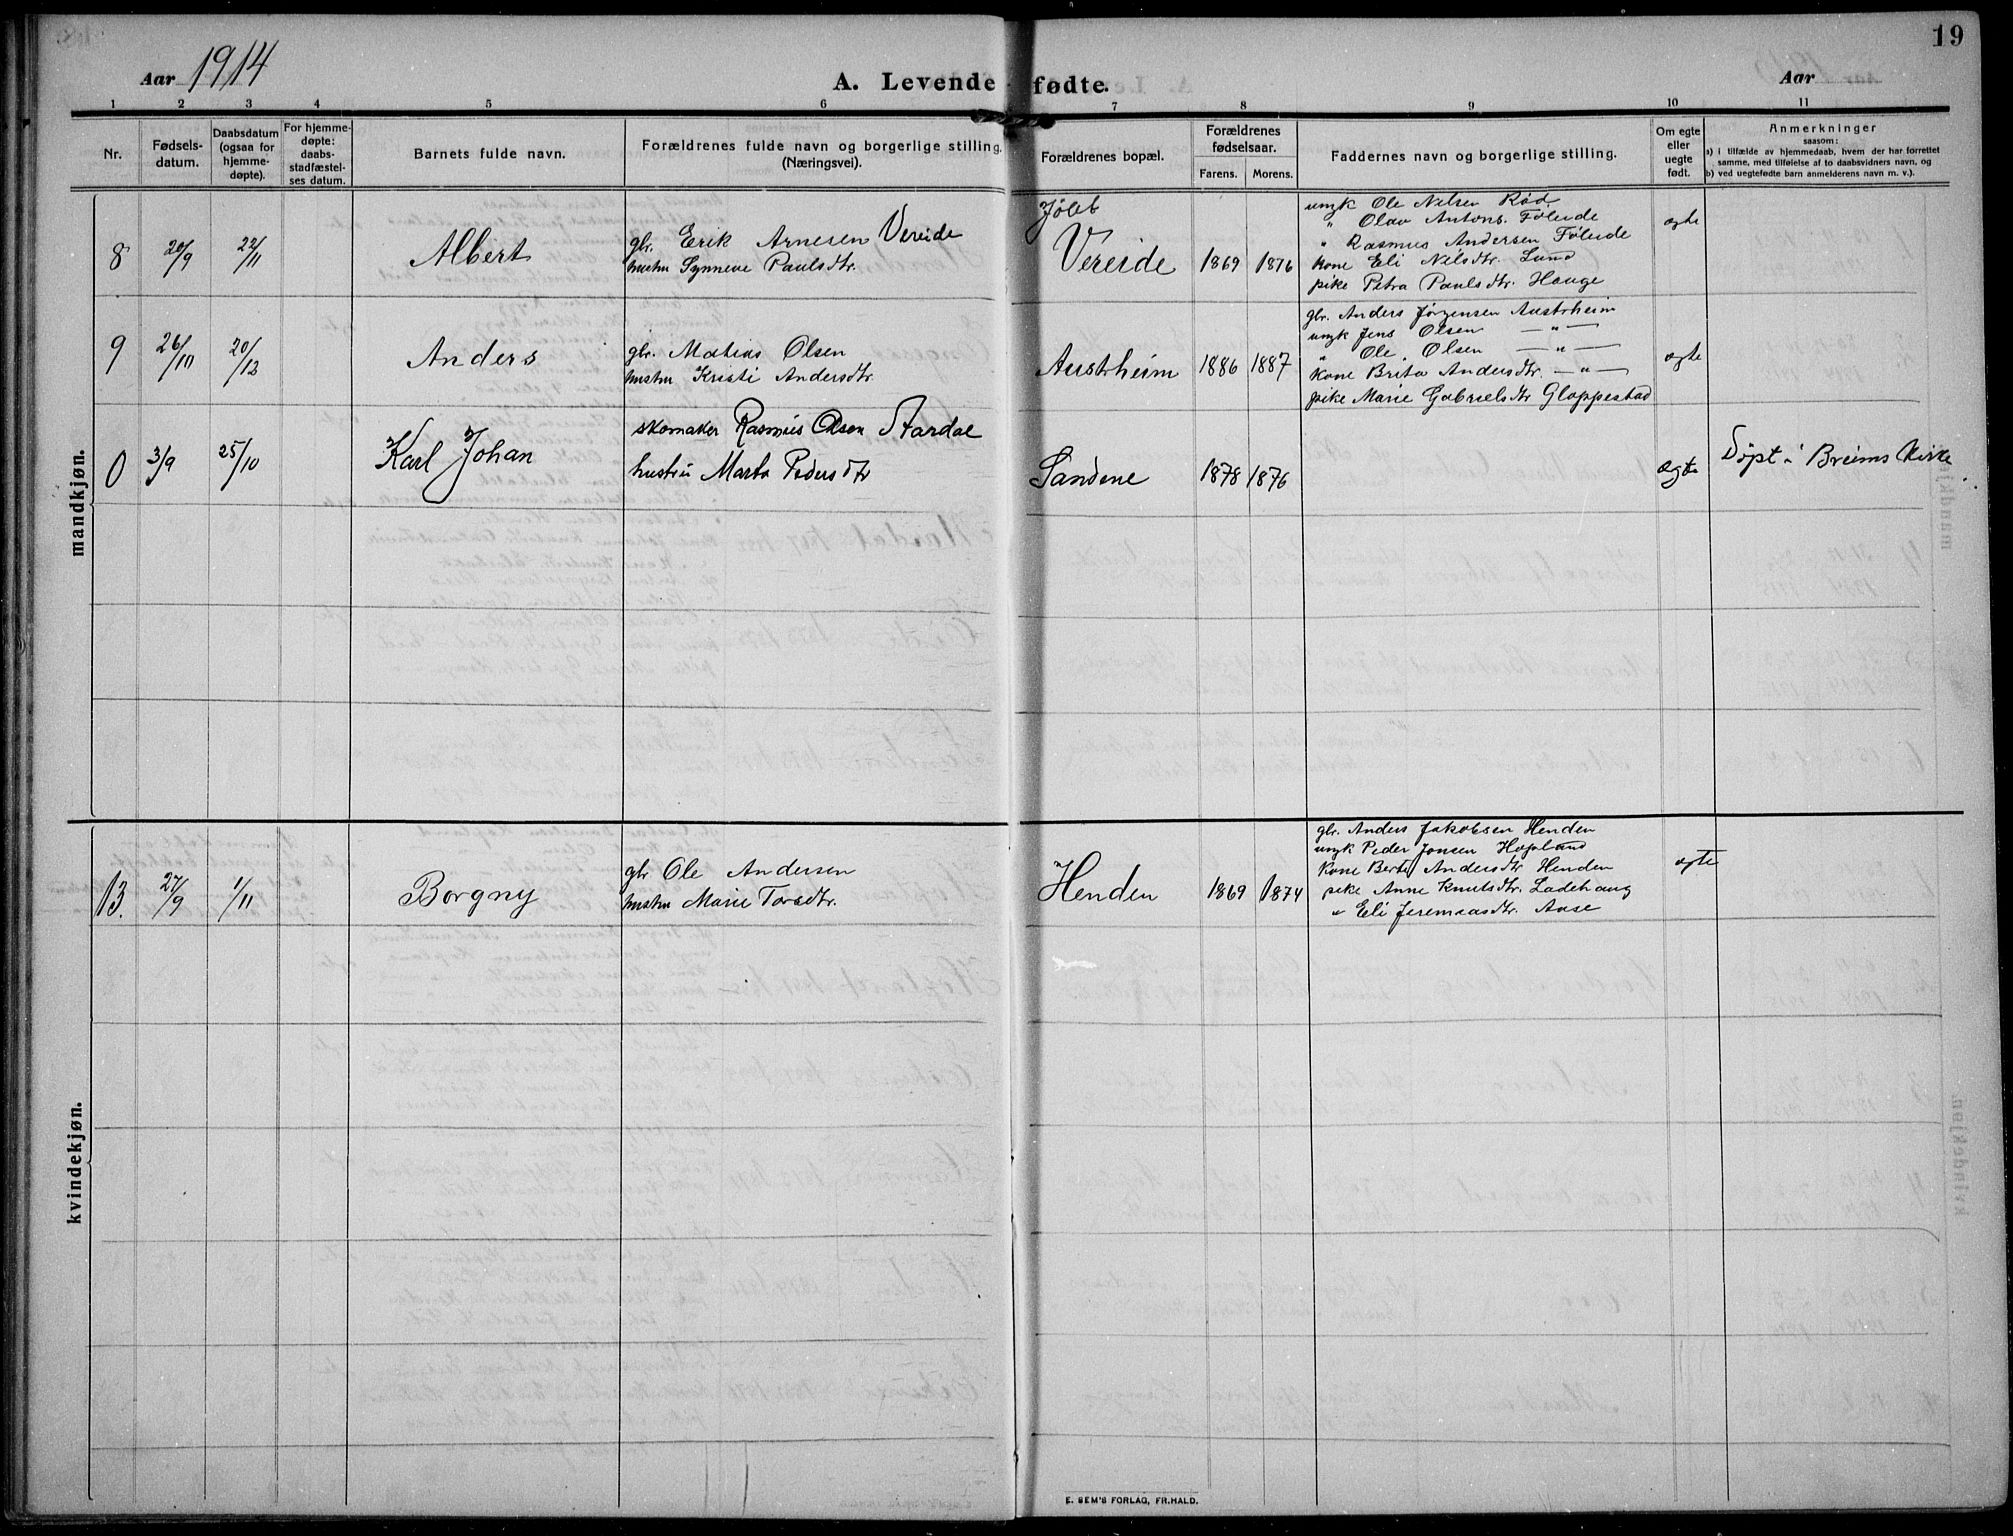 19
Aar 1914
A. Levende fødte.
Aar
1 2 3 4 5 6 7 8 9 10 11
Nr.
Fødsels-
datum.
Daabsdatum
(ogsaa for
hjemme-
døpte).
For hjemme-
døpte:
daabs-
stadfæstel-
ses datum.
Barnets fulde navn.
Forældrenes fulde navn og borgerlige stilling.
(Næringsvei).
Forældrenes bopæl.
Forældrenes
fødselsaar.
Farens. Morens.
Faddernes navn og borgerlige stilling.
Om egte
eller
uegte
født.
Anmerkninger
saasom:
a) i tilfælde av hjemmedaab, hvem der har forrettet
samme, med tilføielse av to daabsvidners navn, og
b) ved uegtefødte barn anmelderens navn m. v.).
mandkjøn.
8 20/9 22/11 Albert
gbr. Erik Arnesen Vereide
hustru Synneve Paulsdtr.
Vereide 1869 1876
ungk Ole Nilsen Rød.
" Olav Antons. Føleide
" Rasmus Andersen Føleide
kone Eli Nilsdtr. Lund
pike Petra Paulsdtr. Hauge
egte
9 26/10 20/12 Anders
gbr. Matias Olsen
hustru Kristi Andersdtr.
Austrheim 1886 1887
gbr. Anders Jørgensen Austrheim
ungk Jens Olsen — " —
" Ole Olsen — " —
kone Brita Andersdtr. — " —
pike Marie Gabrielsdtr Gloppestad
egte
0 3/9 25/10 Karl Johan
skomaker Rasmus Olsen Aardal
hustru Marta Pedersdtr
Sandene 1878 1876
egte
Døpt i Breims Kirke.
kvindekjøn.
13. 27/9 1/11 Borgny
gbr Ole Andersen
hustru Marie Torsdtr.
Henden 1869 1874
gbr. Anders Jakobsen Henden
ungk Peder Jonsen Hopland
Kone Berte Andersdtr Henden
pike Anne Knutsdtr. Ladehaug
" Eli Jeremiasdtr. Aase
egte
E. SEM'S FORLAG, FR.HALD.